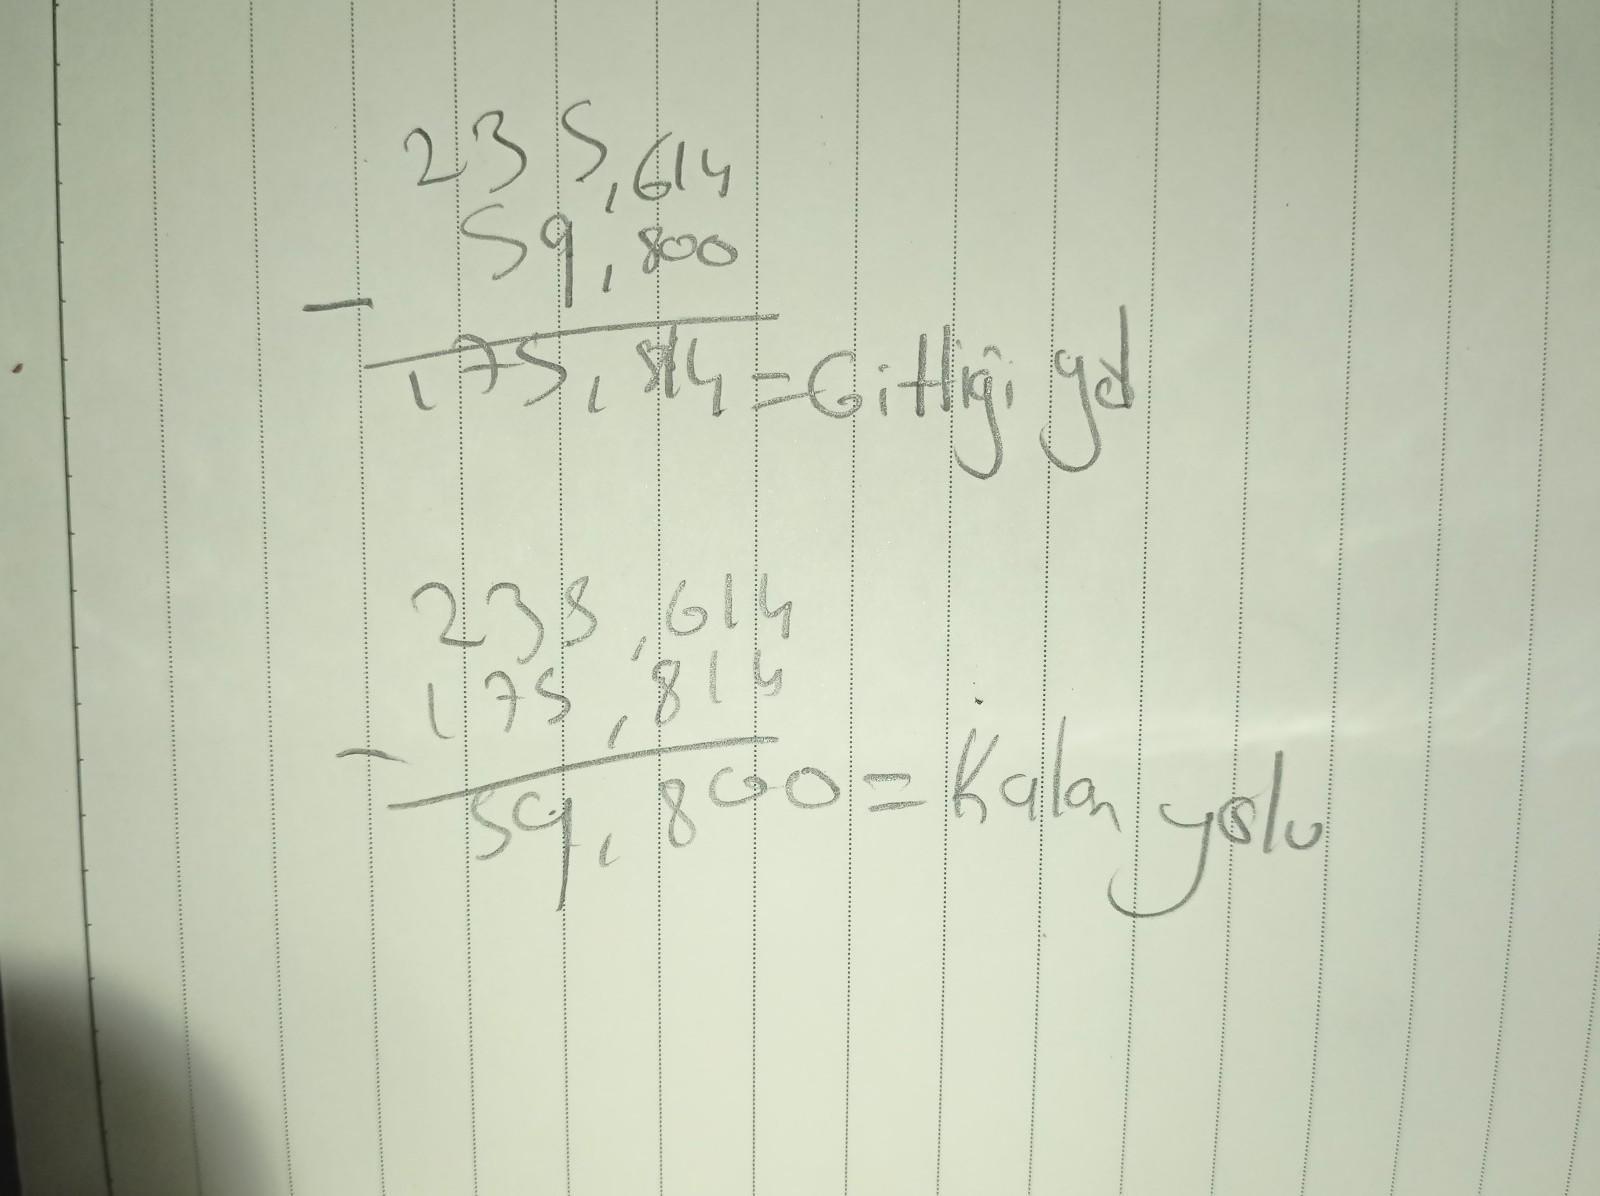 235,614
59,800
-
175,814 = Gittiği yol
235,614
175,814
-
59,800 = Kalan yolu